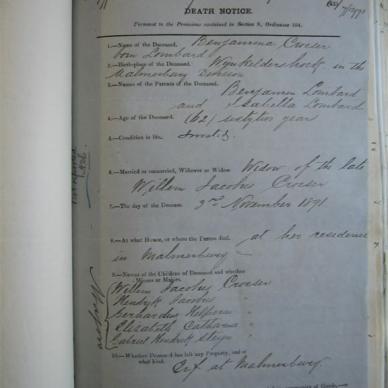 DEATH NOTICE.
Pursuant to the Provisions contained in Section 9, Ordinance 104.
1.—Name of the Deceased. Benjamina Croeser
born Lombard
2.—Birth-place of the Deceased. in the
Malmesbury Division
3.—Names of the Parents of the Deceased.
Benjamin Lombard
and Isabella Lombard
4.—Age of the Deceased. (62) sixty two years
5.—Condition in life.
6.—Married or unmarried, Widower or Widow Widow of the late
Willem Jacobus Croeser
7.—The day of the Decease. 3rd November 1891
8.—At what House, or where the Person died. at her residence
in Malmesbury
9.—Names of the Children of Deceased and whether
Minors or Majors.
Willem Jacobus Croeser
Hendrik Jacobus "
Gerhardus "
Elizabeth Catharina "
Gabriel Hendrik Steyn "
Majors
10.—Whether Deceased has left any Property, and of
what kind.
Erf at Malmesbury